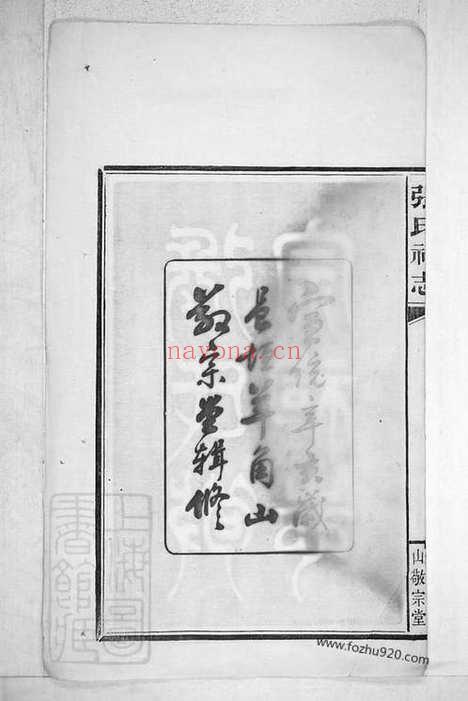 張氏祠志
山敬宗堂
宣統辛亥歲
邑羊角山
敬宗堂輯修
上海圖書館藏
nayona.cn
www.fozhu920.com